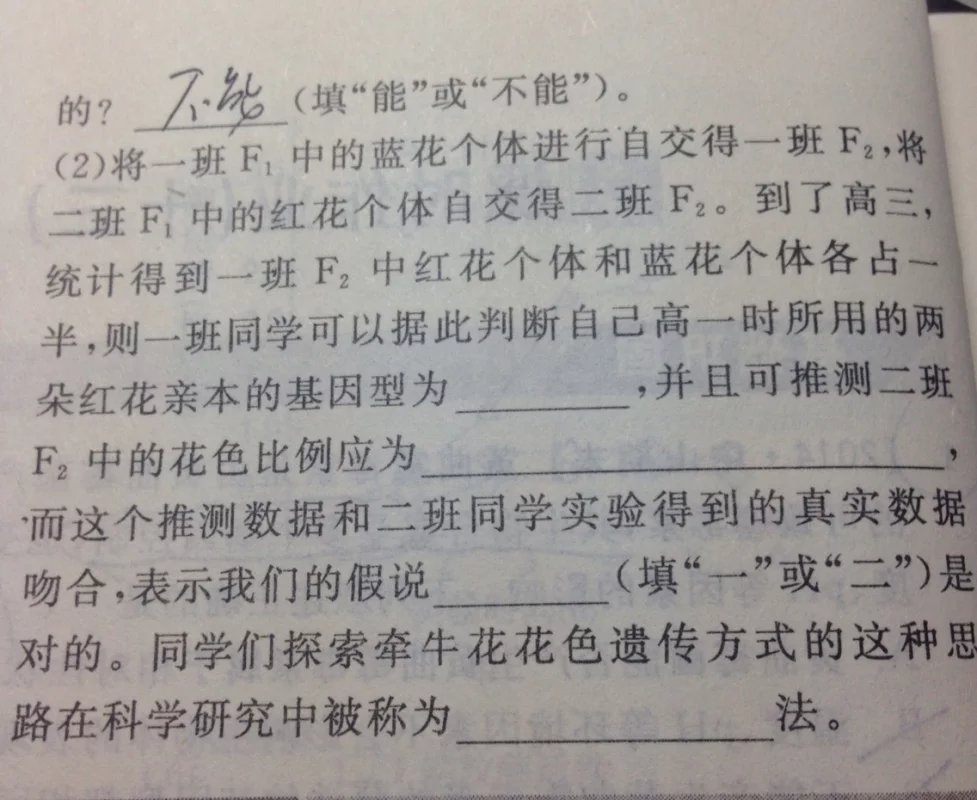 的? 不能 (填“能”或“不能”)。
(2)将一班 F₁ 中的蓝花个体进行自交得一班 F₂,将
二班 F₁ 中的红花个体自交得二班 F₂。到了高三,
统计得到一班 F₂ 中红花个体和蓝花个体各占一
半,则一班同学可以据此判断自己高一时所用的两
朵红花亲本的基因型为________,并且可推测二班
F₂ 中的花色比例应为________________________,
而这个推测数据和二班同学实验得到的真实数据
吻合,表示我们的假说________(填“一”或“二”)是
对的。同学们探索牵牛花花色遗传方式的这种思
路在科学研究中被称为______________法。